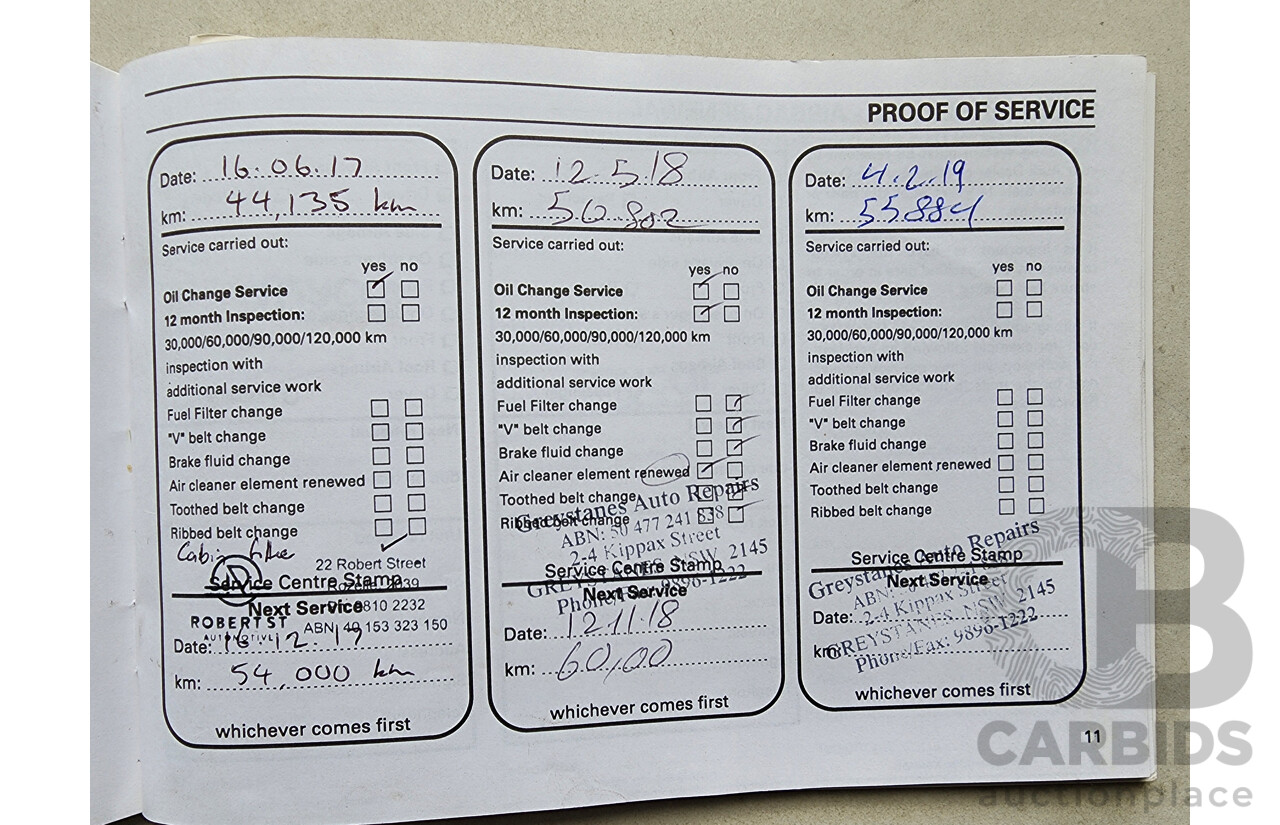 PROOF OF SERVICE
Date: 16.06.17
km: 44,135 km
Service carried out:
yes no
Oil Change Service
12 month Inspection:
30,000/60,000/90,000/120,000 km
inspection with
additional service work
Fuel Filter change
"V" belt change
Brake fluid change
Air cleaner element renewed
Toothed belt change
Ribbed belt change
22 Robert Street
Service Centre Stamp
Next Service
810 2232
ROBERT ST
AUTOMOTIVE
ABN: 40 153 323 150
Date: 16.12.17
km: 54,000 km
whichever comes first
Date: 12.5.18
km: 50802
Service carried out:
yes no
Oil Change Service
12 month Inspection:
30,000/60,000/90,000/120,000 km
inspection with
additional service work
Fuel Filter change
"V" belt change
Brake fluid change
Air cleaner element renewed
Toothed belt change
Ribbed belt change
Greystanes Auto Repairs
ABN: 50 477 241 838
2-4 Kippax Street
GREYSTANES NSW 2145
Service Centre Stamp
Phone/Fax: 9896-1222
Next Service
Date: 12.11.18
km: 60,00
whichever comes first
Date: 4.2.19
km: 55884
Service carried out:
yes no
Oil Change Service
12 month Inspection:
30,000/60,000/90,000/120,000 km
inspection with
additional service work
Fuel Filter change
"V" belt change
Brake fluid change
Air cleaner element renewed
Toothed belt change
Ribbed belt change
Greystanes Auto Repairs
Service Centre Stamp
Next Service
ABN:
2-4 Kippax Street
Date:
GREYSTANES, NSW 2145
km:
Phone/Fax: 9896-1222
whichever comes first
11
CB
CARBIDS
auctionplace